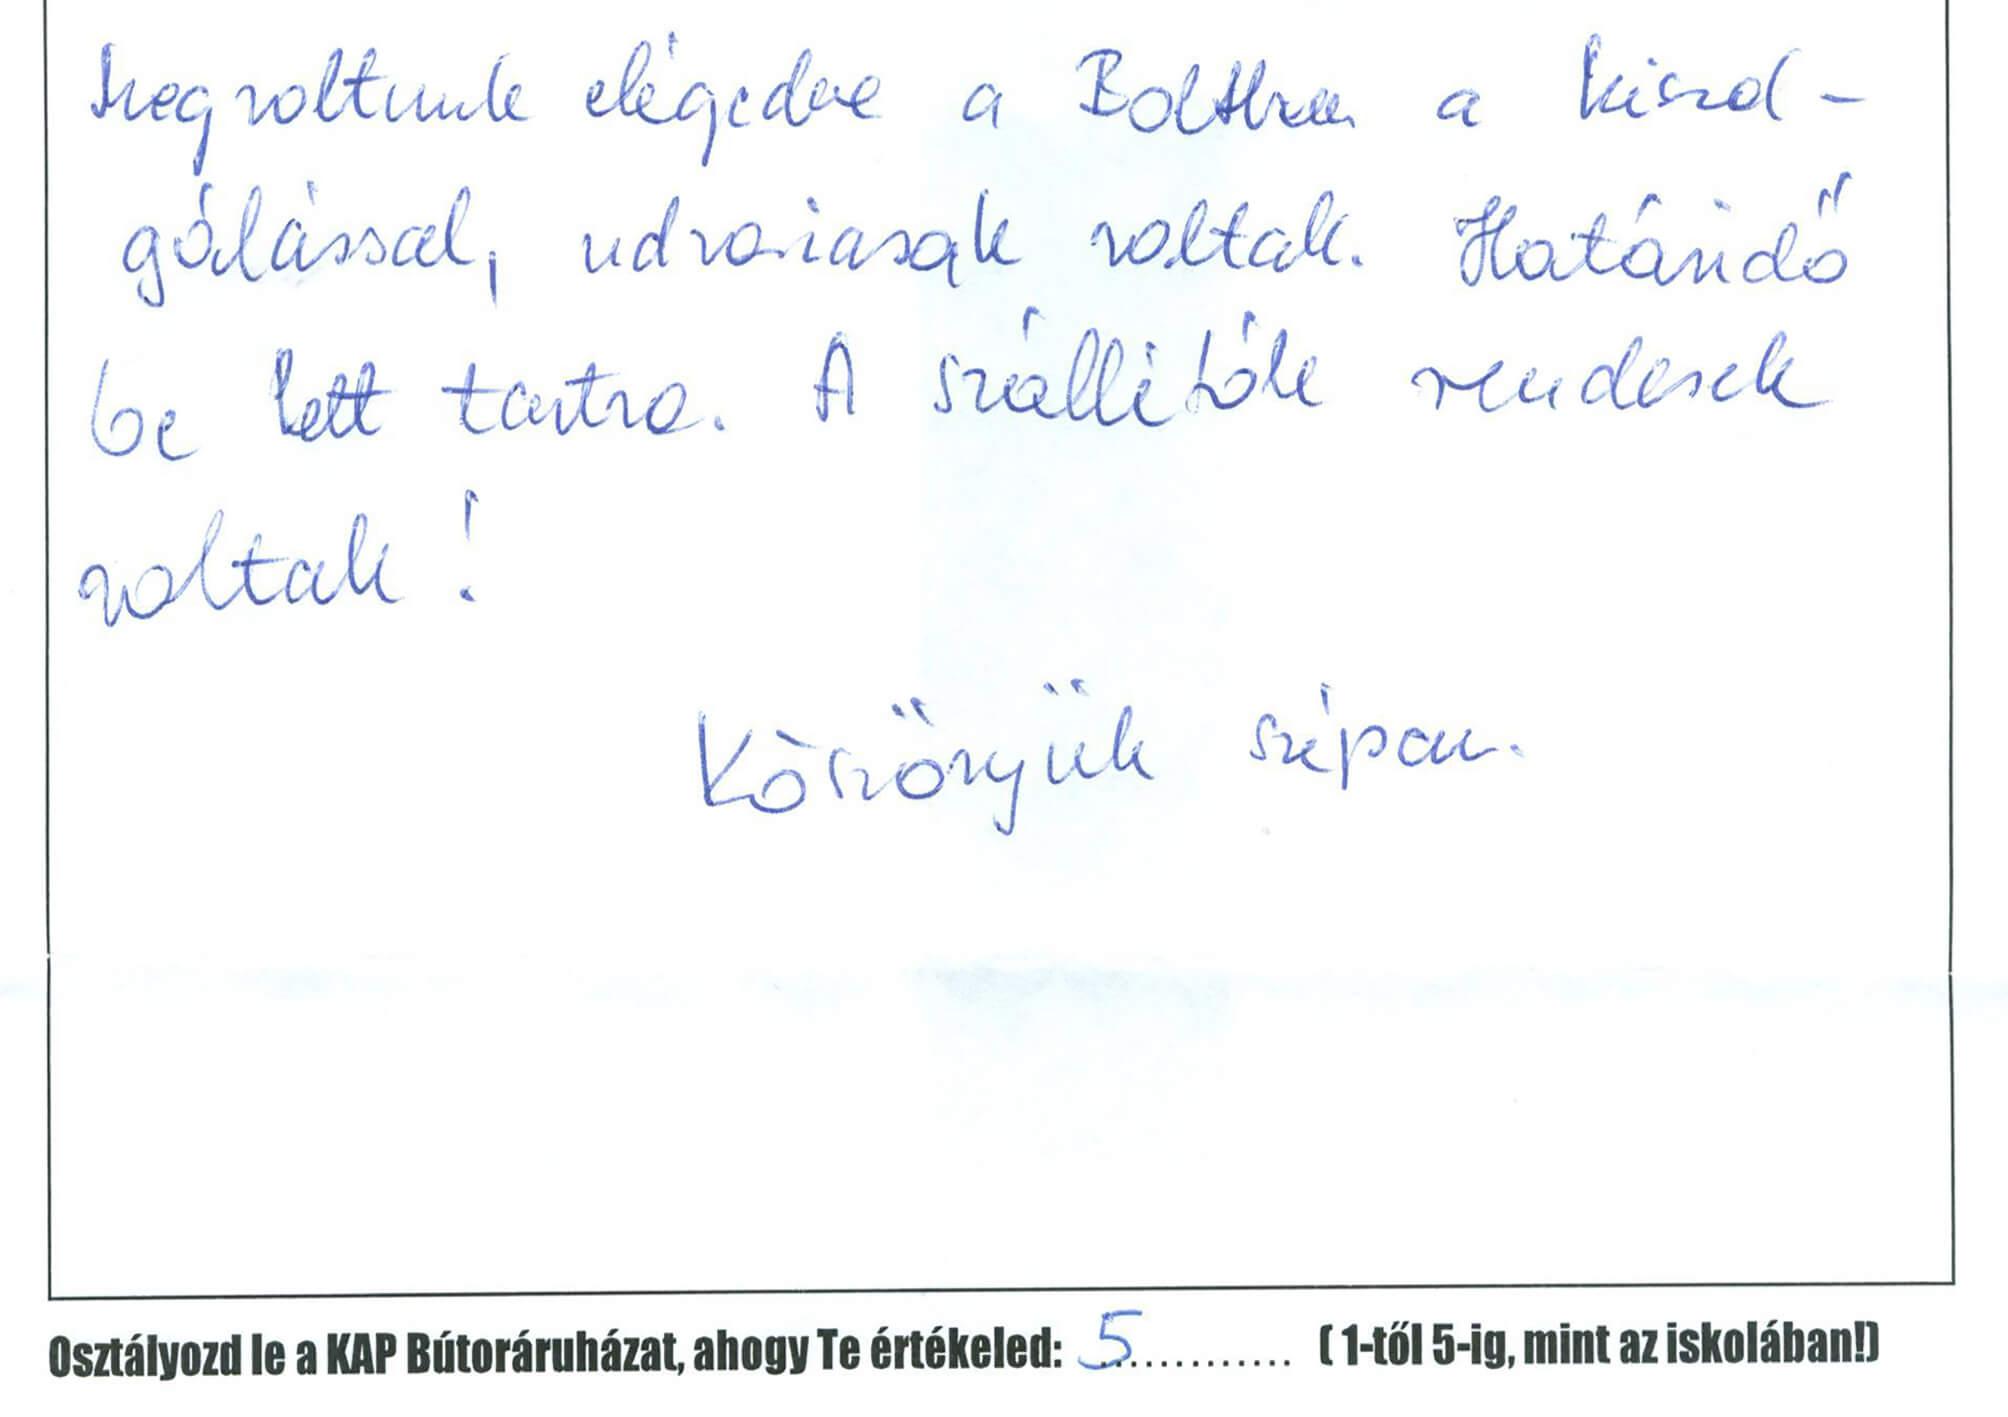 Megvoltunk elégedve a Boltban a kiszol-
gálással, udvariasak voltak. Határidő
be lett tartva. A szállítók rendesek
voltak!
Köszönjük szépen.
Osztályozd le a KAP Bútoráruházat, ahogy Te értékeled: 5............ (1-től 5-ig, mint az iskolában!)